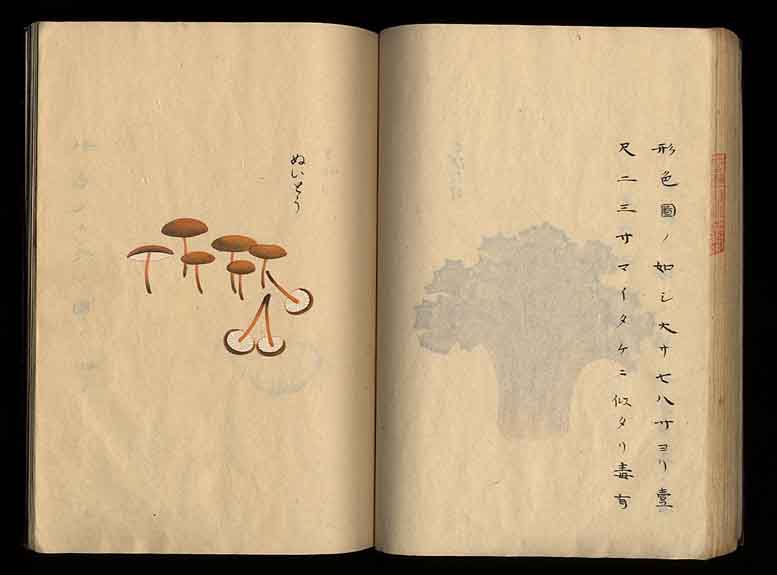 形色圖ノ如シ大サ七八寸ヨリ壹
尺二三寸マイタケニ似タリ毒有
ぬいとう